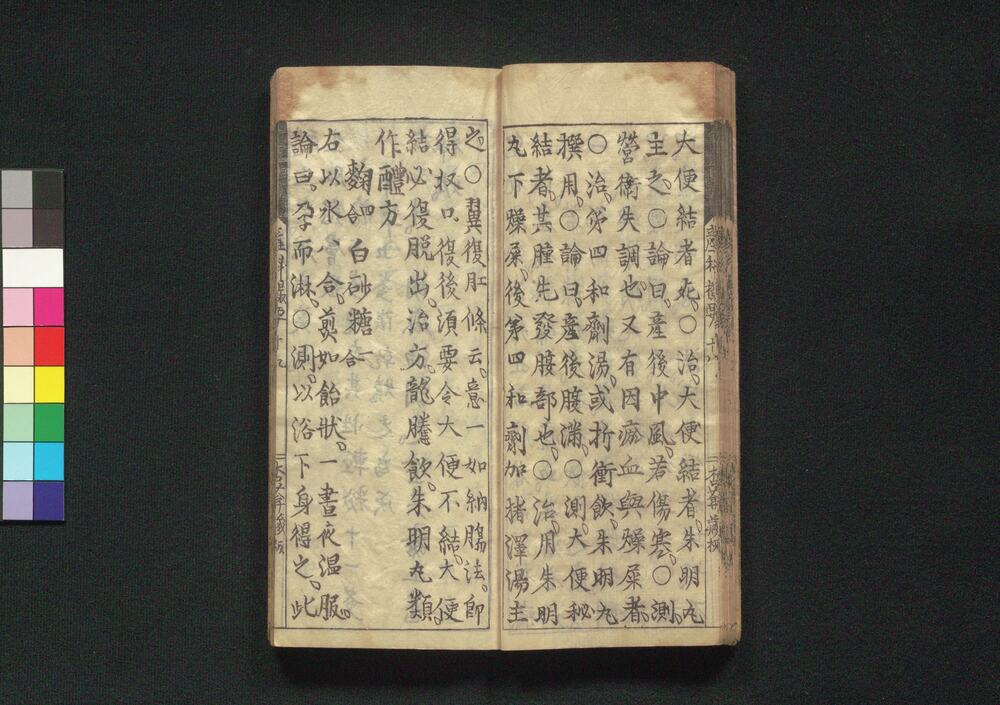 大便結者死。○治。大便結者。朱明丸
主之。○論曰。產後中風。若傷寒。○測。
營衛失調也。又有因瘀血與燥屎者。
○治。第四和劑湯。或折衝飲。朱明丸
撰用。○論曰。產後腹滿。○測。大便秘
結者。其腫先發腰部也。○治。用朱明
丸下燥屎。後第四和劑加猪澤湯主
之。○翼復肛條云。意一如納腸法。即
得收口。復後須要令大便不結。大便
結必復脫出。治方。龍騰飲。朱明丸類。
作醴方
麴四合 白砂糖一合
右以水八合。煎如飴狀。一晝夜溫服。
論曰。孕而淋。○測。以浴下身得之。此